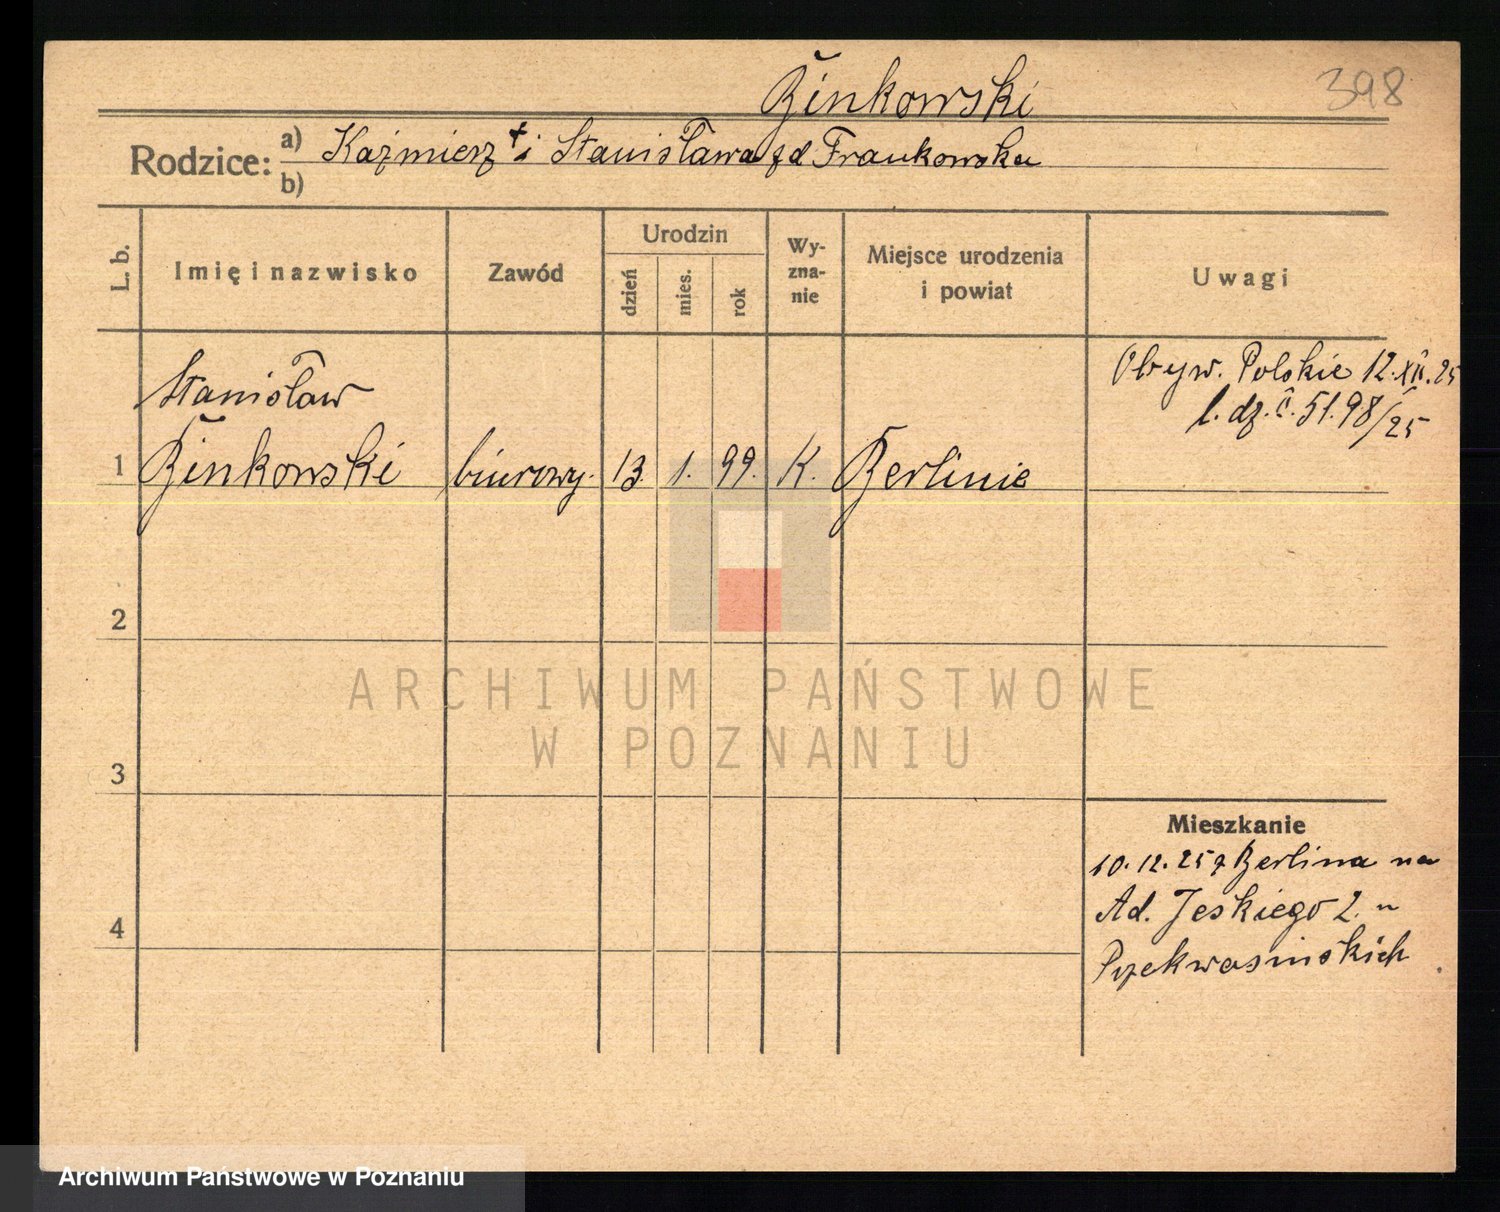 Binkowski
398
Rodzice: a) Kaźmierz + i Stanisława zd Frankowska
b)
L. b.
Imię i nazwisko
Zawód
Urodzin
dzień
mies.
rok
Wy-
zna-
nie
Miejsce urodzenia
i powiat
Uwagi
Stanisław
1 Binkowski biurowy. 13. 1. 99. K. Berlinie
Obyw. Polskie 12.XII.25
l. dz. 51.98/25
2
3
4
Mieszkanie
10.12.25 z Berlina na
Ad. Jeskiego 2. u
Przekwasinskich
ARCHIWUM PAŃSTWOWE
W POZNANIU
Archiwum Państwowe w Poznaniu